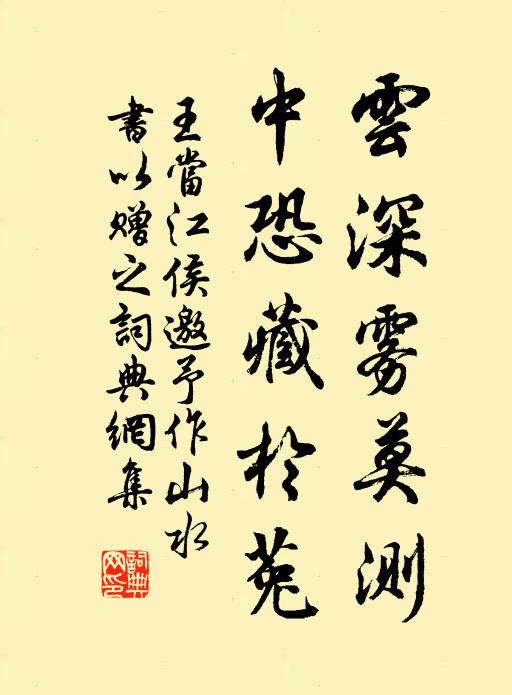 雲深雾莫测
中恐藏於菟
王當江侯邀予作山水
書以赠之詞典網集
詞典网印